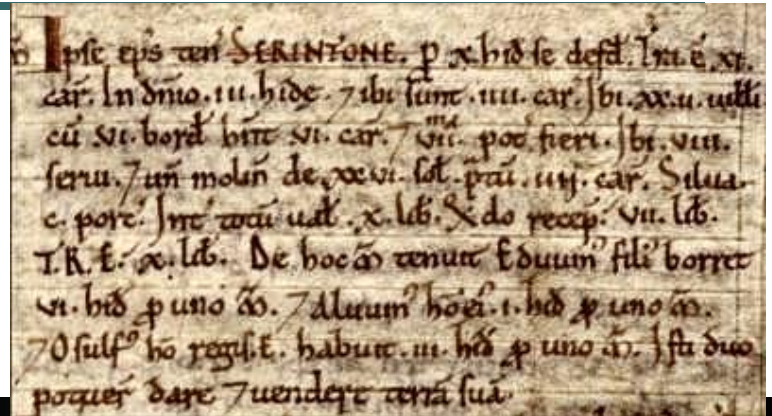 m̃ Ipse ep̃s ten̄ SERINTONE. p̱ x. hid̄ se defđ. Tr̄a. ē. xi.
car̄. In dn̄io. iii. hidę. ⁊ ibi sunt. iiii. car̄. Ibi. xx.ii. uilli
cū vi. bord̄ hn̄t vi. car̄. ⁊ vii.ma pot̄ fieri. Ibi. viii.
serui. ⁊ un̄ molin̄ de xxvi. sol̄. p̄tū. iiij. car̄. Silua.
c. porc̄. Int̄ totū ual̄. x. lib̄. Q̄do recep̄: vii. lib̄.
T.R.E: x. lib̄. De hoc m̃ tenuit Eduuin᷒ fili᷒ borret
vi. hid̄ p̱ uno m̃. ⁊ Aluuin᷒ hō ei᷒. i. hid̄ p̱ uno m̃.
⁊ Osulf᷒ hō regis. E. habuit. iii. hid̄ p̱ uno m̃. Isti duo
potuer̄ dare ⁊ uendere terrā suā.